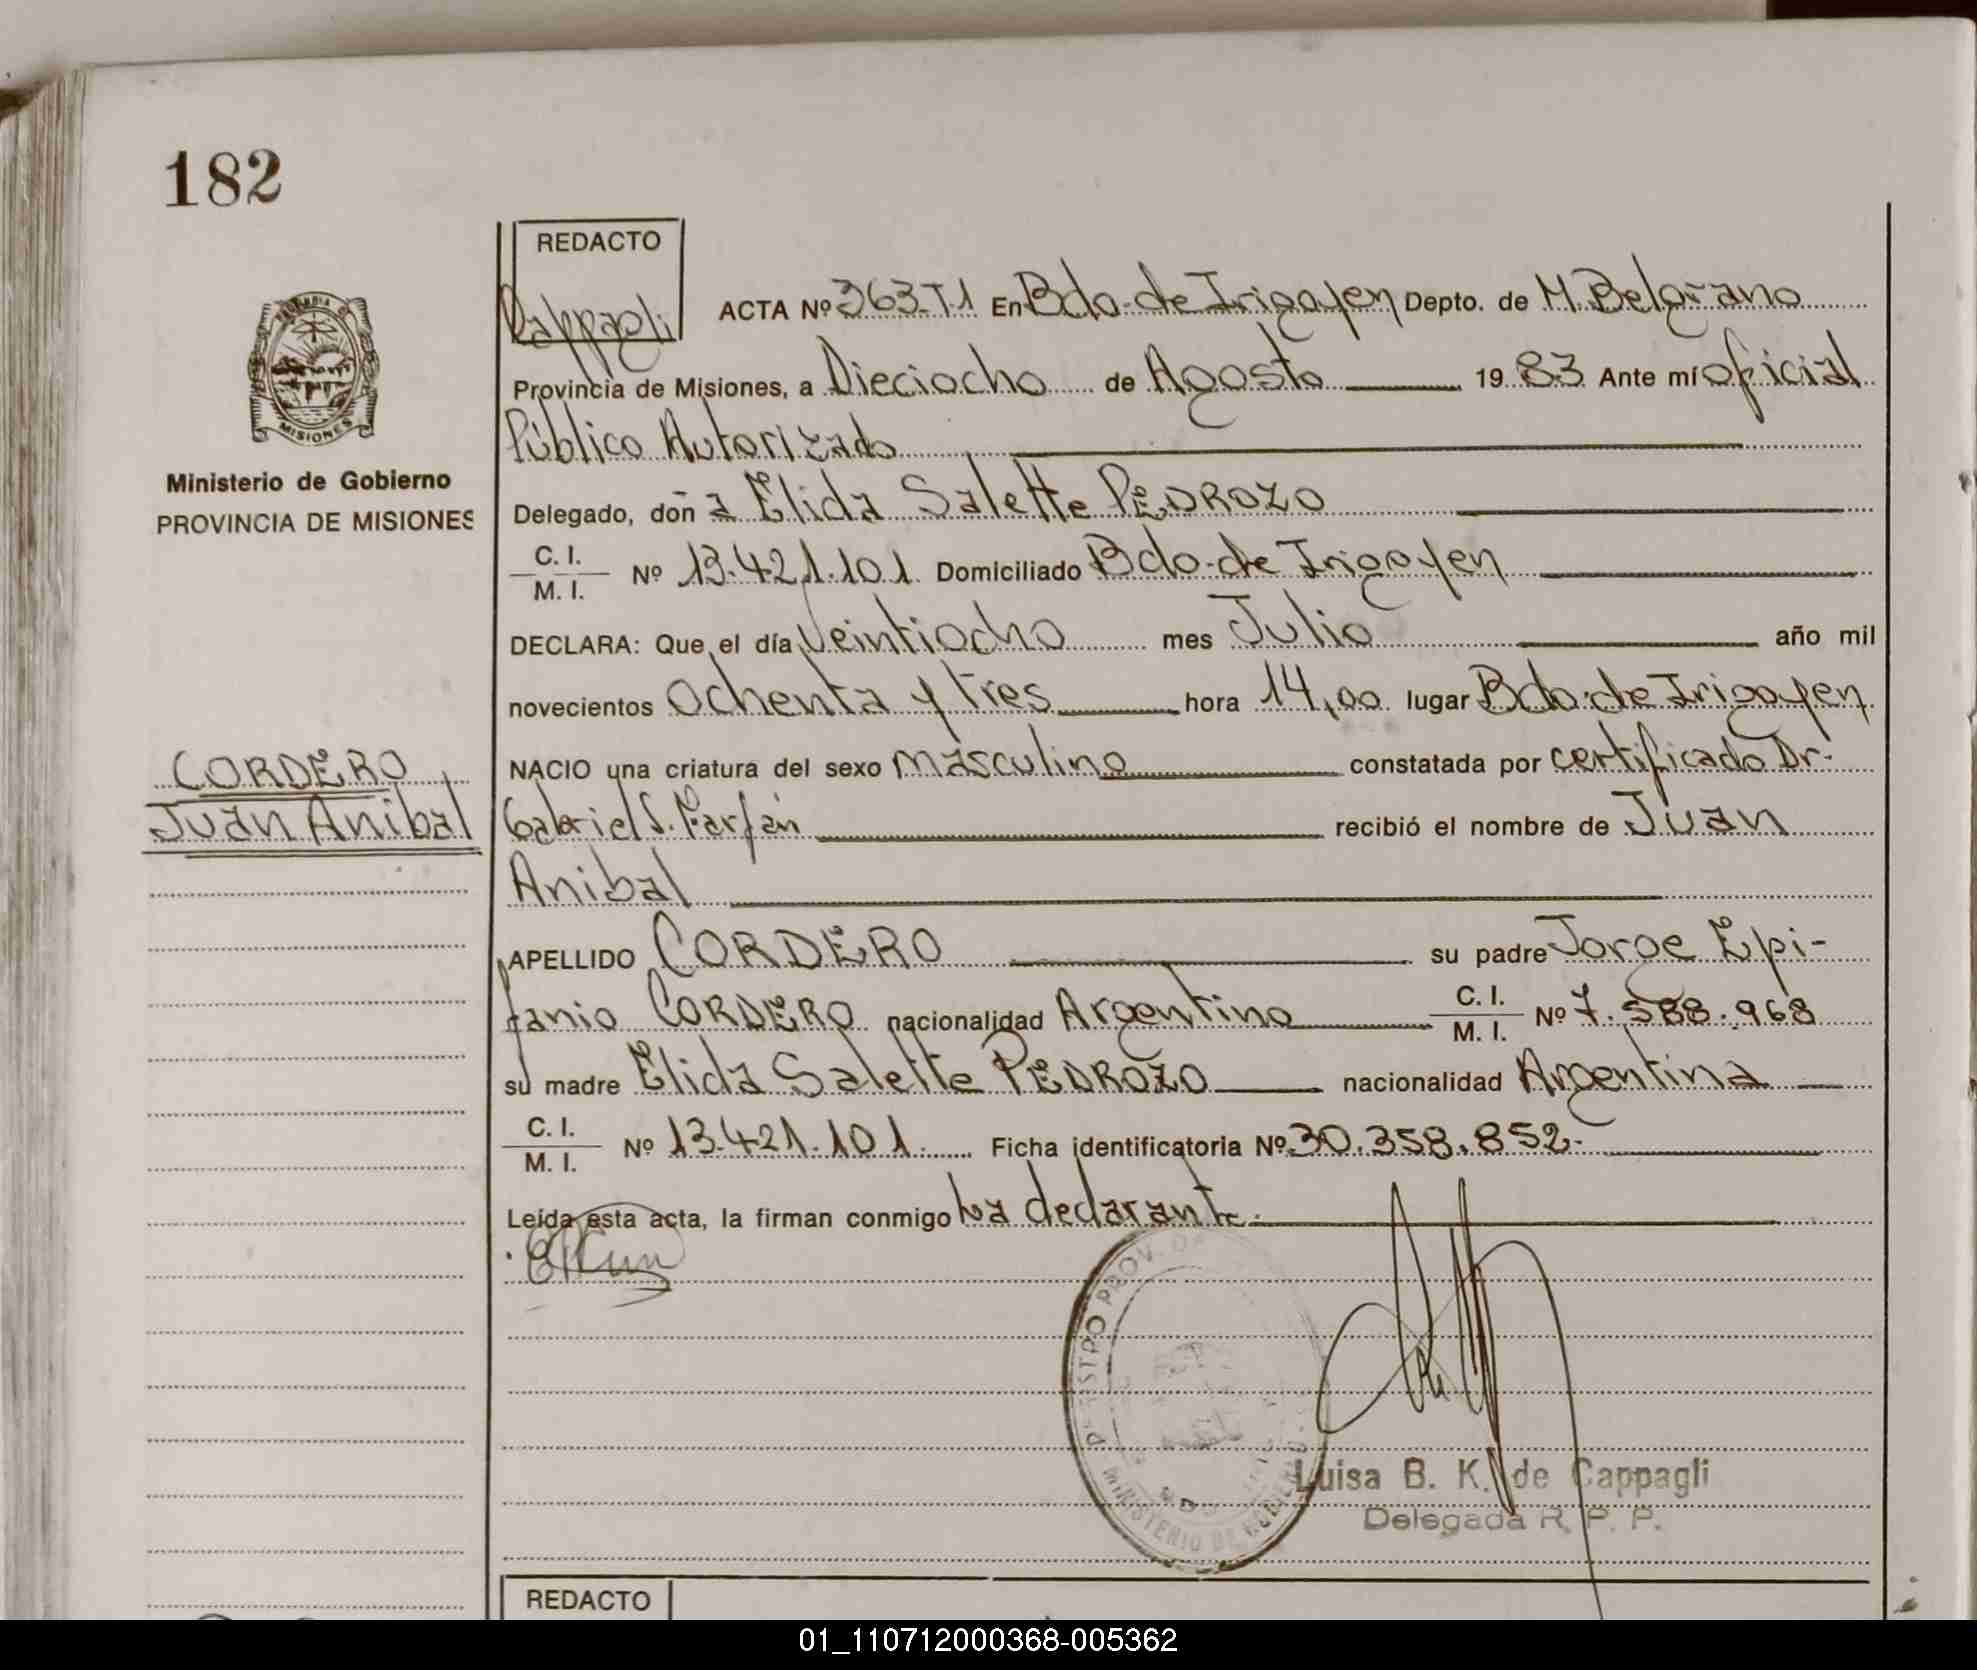 182
REDACTO
Cappagli
ACTA Nº 363-T.1 En Bdo. de Irigoyen Depto. de M. Belgrano
Provincia de Misiones, a Dieciocho de Agosto 19 83 Ante mí oficial
Público Autorizado
MISIONES
Ministerio de Gobierno
PROVINCIA DE MISIONES
Delegado, doñ a Elida Salette PEDROZO
C. I.
M. I.
Nº 13.421.101. Domiciliado Bdo. de Irigoyen
DECLARA: Que el día Veintiocho mes Julio año mil
novecientos Ochenta y tres hora 14,00 lugar Bdo. de Irigoyen
CORDERO
Juan Anibal
NACIO una criatura del sexo masculino constatada por certificado Dr.
Gabriel S. Farfán recibió el nombre de Juan
Anibal
APELLIDO CORDERO su padre Jorge Epi-
fanio CORDERO nacionalidad Argentino C. I. M. I. Nº 7.588.968
su madre Elida Salette PEDROZO nacionalidad Argentina
C. I.
M. I.
Nº 13.421.101. Ficha identificatoria Nº 30.358.852.
Leída esta acta, la firman conmigo La declarante.
MINISTERIO DE GOBIERNO
Luisa B. K. de Cappagli
Delegada R. P. P.
REDACTO
01_110712000368-005362